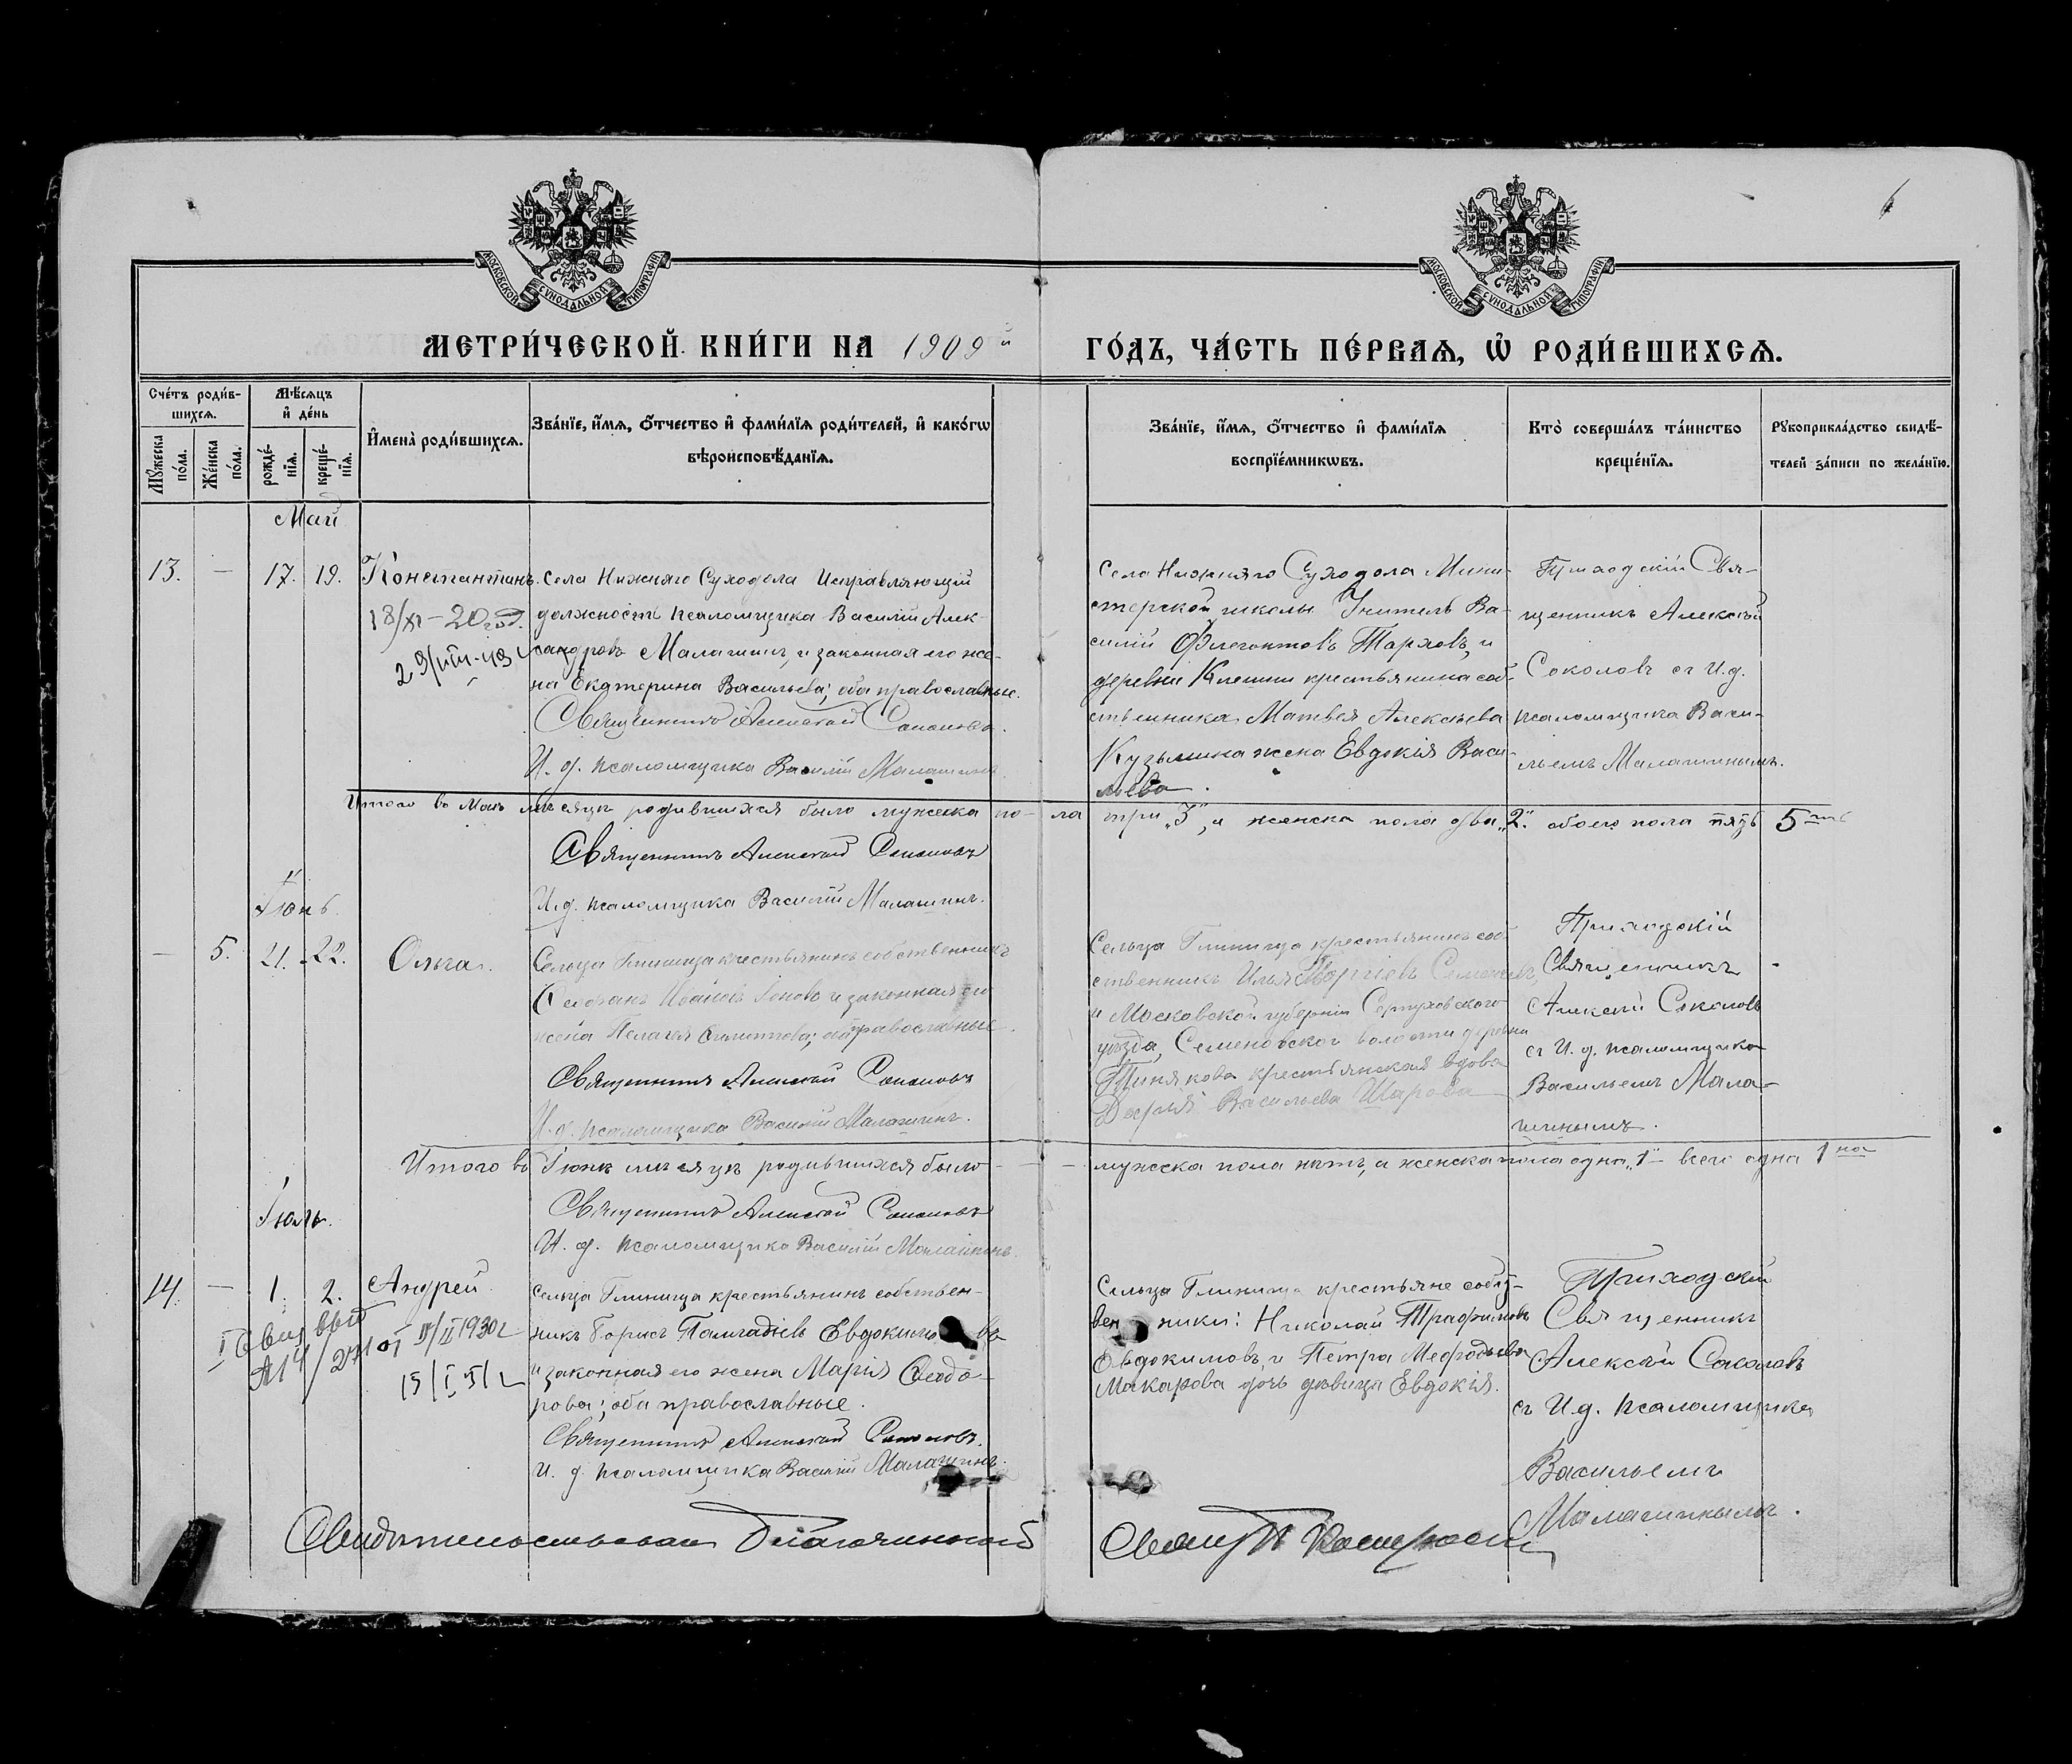 6
МОСКОВСКОЙ СУНОДАЛЬНОЙ ТИПОГРАФІИ
МОСКОВСКОЙ СУНОДАЛЬНОЙ ТИПОГРАФІИ
МЕТРИ́ЧЕСКОЙ КНИ́ГИ НА 1909й ГО́ДЪ, ЧА́СТЬ ПЕ́РВАѦ, Ѡ РОДИ́ВШИХСѦ.
Сче́тъ роди́в-
шихсѧ.
Мꙋжеска по́ла.
Же́нска по́ла.
Мѣ́сѧцъ
и҆ де́нь
рожде́-
нїѧ.
креще́-
нїѧ.
И҆мена̀ роди́вшихсѧ.
Зва́нїе, и҆́мѧ, ѻ҆́тчество и҆ фами́лїѧ роди́телей, и҆ како́гѡ
вѣроисповѣ́данїѧ.
Зва́нїе, и҆́мѧ, ѻ҆́тчество и҆ фами́лїѧ
воспрїе́мникѡвъ.
Кто̀ соверша́лъ та́инство
креще́нїѧ.
Рꙋкоприкла́дство свидѣ́-
телей за́писи по жела́нїю.
Май
13. — 17. 19. Константинъ.
18/XI – 20 год.
Села Нижняго Суходола Исправляющій
должность псаломщика Василій Алек-
сандровъ Малашинъ, и законная его же-
на Екатерина Васильева; оба православные.
Священникъ Алексій Соколовъ.
И. д. псаломщика Василій Малашинъ.
Села Нижняго Суходола Мини-
стерской школы Учитель Ва-
силій Флегонтовъ Тарховъ, и
деревни крестьянина соб-
ственника Матвея Алексѣева
Кузьмина жена Евдокія Васи-
льева.
Приходскій Свя-
щенникъ Алексѣй
Соколовъ съ И.д.
псаломщика Васи-
льемъ Малашинымъ.
Итого въ Маѣ мѣсяцѣ родившихся было мужеска по- ла три „3", и женска пола два „2". обоего пола пять 5ть
Священникъ Алексій Соколовъ
И.д. псаломщика Василій Малашинъ.
Іюнь.
— 5. 21. 22. Ольга.
Сельца Глинища крестьянинъ собственникъ
Стефанъ Ивановъ и законная его
жена Пелагея; оба православные.
Священникъ Алексій Соколовъ
И.д. псаломщика Василій Малашинъ.
Сельца Глинища крестьянинъ соб-
ственникъ Илья Георгіевъ
и Московской губерніи Серпуховского
уѣзда, Семеновской волости деревни
крестьянская вдова
Дарья Васильева Шарова
Приходскій
Священникъ
Алексій Соколовъ
съ И.д. псаломщика
Васильемъ Мала-
шинымъ.
Итого въ Іюнѣ мѣсяцѣ родившихся было — — — мужеска пола нѣтъ, а женска пола одна „1" — всего одна 1на
Священникъ Алексій Соколовъ
И. д. псаломщика Василій Малашинъ.
Іюль.
14. — 1. 2. Андрей
15/I
Сельца Глинища крестьянинъ собствен-
никъ Борисъ Евдокимовъ
и законная его жена Марія Ѳеодо-
рова; оба православные.
Священникъ Алексій Соколовъ.
И. д. псаломщика Василій Малашинъ.
Сельца Глинища крестьяне собст-
вен ники: Николай Трофимовъ
Евдокимовъ, и Петра Мефодьева
Макарова дочь дѣвица Евдокія.
Приходскій
Священникъ
Алексѣй Соколовъ
съ И.д. псаломщика
Васильемъ
Малашинымъ.
Свидѣтельствовалъ Благочинный